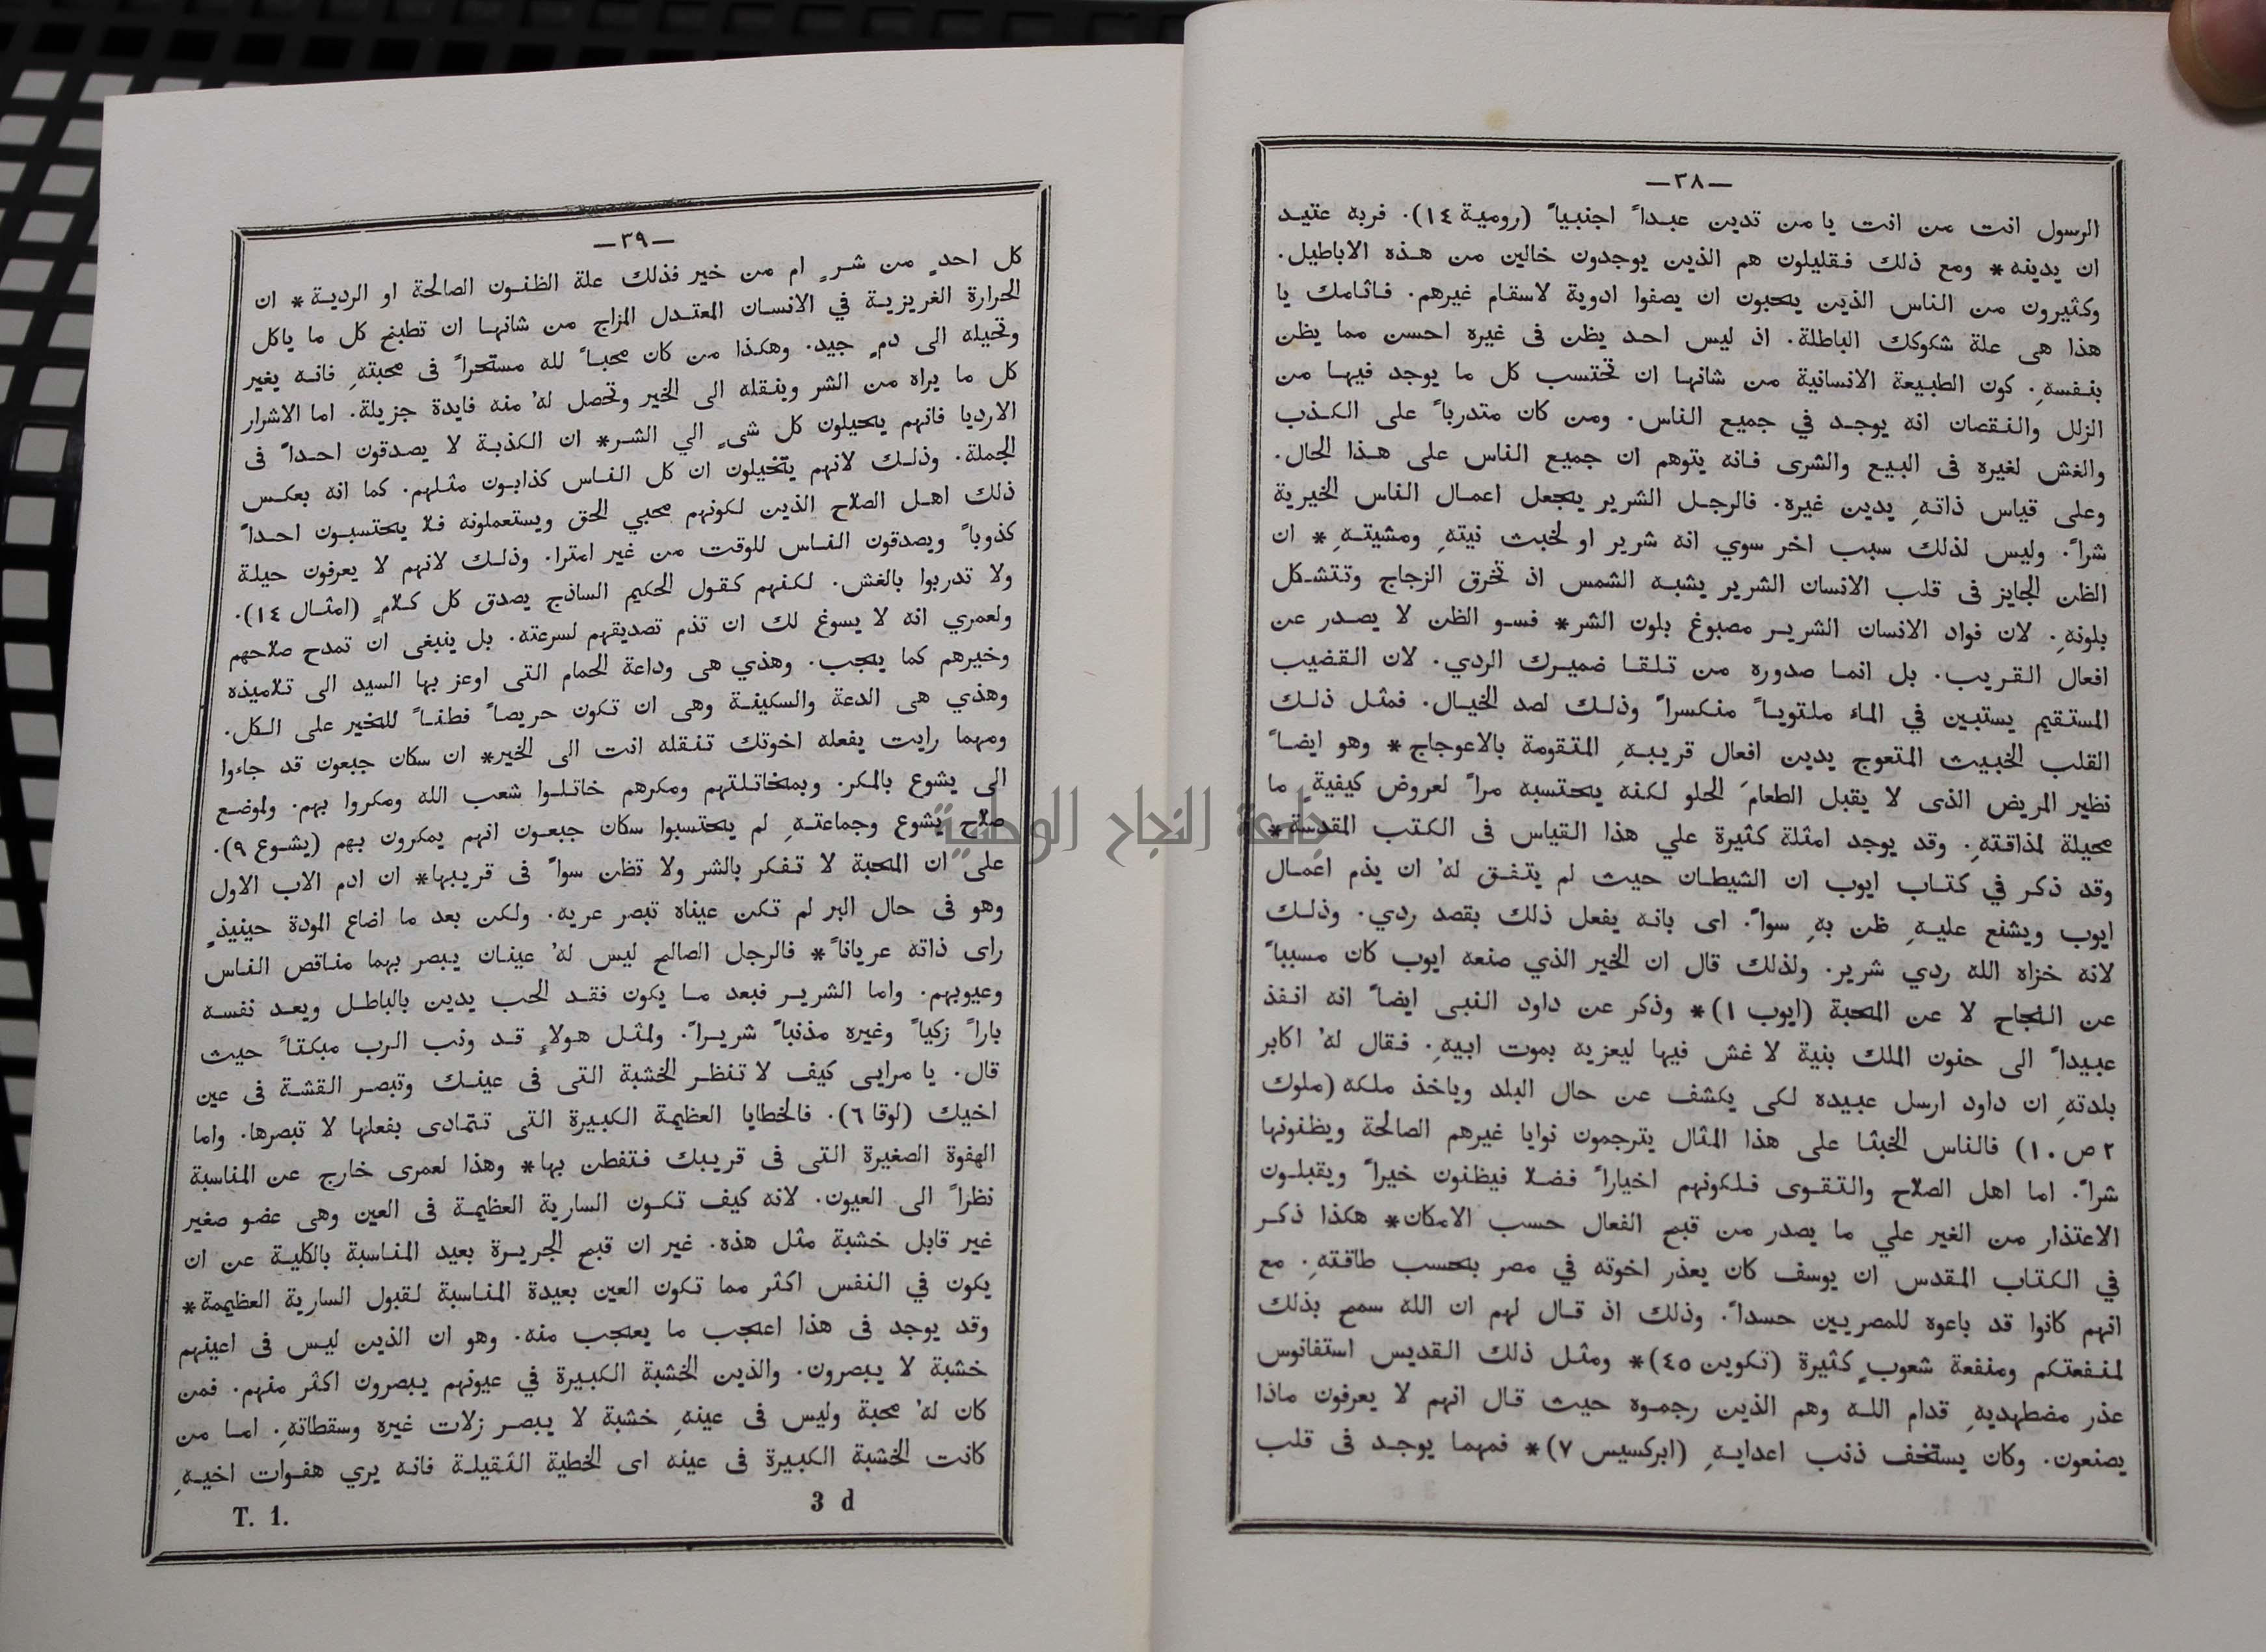 —٣٨—
الرسول انت من انت يا من تدين عبداً اجنبياً (رومية ١٤). فربه عتيد
ان يدينه* ومع ذلك فقليلون هم الذين يوجدون خالين من هذه الاباطيل.
وكثيرون من الناس الذين يحبون ان يصفوا ادوية لاسقام غيرهم. فاثامك يا
هذا هى علة شكوكك الباطلة. اذ ليس احد يظن فى غيره احسن مما يظن
بنفسهِ. كون الطبيعة الانسانية من شانها ان تحتسب كل ما يوجد فيها من
الزلل والنقصان انه يوجد في جميع الناس. ومن كان متدرباً على الكذب
والغش لغيره فى البيع والشرى فانه يتوهم ان جميع الناس على هذا الحال.
وعلى قياس ذاتهِ يدين غيره. فالرجل الشرير يجعل اعمال الناس الخيرية
شراً. وليس لذلك سبب اخر سوي انه شرير او لخبث نيتهِ ومشيتهِ* ان
الظن الجايز فى قلب الانسان الشرير يشبه الشمس اذ تخرق الزجاج وتتشكل
بلونهِ. لان فواد الانسان الشرير مصبوغ بلون الشر* فسو الظن لا يصدر عن
افعال القريب. بل انما صدوره من تلقا ضميرك الردي. لان القضيب
المستقيم يستبين في الماء ملتوياً منكسراً وذلك لصد الخيال. فمثل ذلك
القلب الخبيث المتعوج يدين افعال قريبهِ المتقومة بالاعوجاج* وهو ايضاً
نظير المريض الذى لا يقبل الطعامَ الحلو لكنه يحتسبه مراً لعروض كيفيةٍ ما
محيلة لمذاقتهِ. وقد يوجد امثلة كثيرة علي هذا القياس فى الكتب المقدسة*
وقد ذكر في كتاب ايوب ان الشيطان حيث لم يتفق لهُ ان يذم اعمال
ايوب ويشنع عليهِ ظن بهِ سواً. اى بانه يفعل ذلك بقصد ردي. وذلك
لانه خزاه الله ردي شرير. ولذلك قال ان الخير الذي صنعه ايوب كان مسبباً
عن النجاح لا عن المحبة (ايوب ١)* وذكر عن داود النبى ايضاً انه انفذ
عبيداً الى حنون الملك بنية لا غش فيها ليعزيه بموت ابيهِ. فقال لهُ اكابر
بلدتهِ ان داود ارسل عبيده لكى يكشف عن حال البلد وياخذ ملكه (ملوك
٢ ص ١٠) فالناس الخبثا على هذا المثال يترجمون نوايا غيرهم الصالحة ويظنونها
شراً. اما اهل الصلاح والتقوى فلكونهم اخياراً فضلا فيظنون خيراً ويقبلون
الاعتذار من الغير علي ما يصدر من قبح الفعال حسب الامكان* هكذا ذكر
في الكتاب المقدس ان يوسف كان يعذر اخوته في مصر بحسب طاقتهِ. مع
انهم كانوا قد باعوه للمصريين حسداً. وذلك اذ قال لهم ان الله سمح بذلك
لمنفعتكم ومنفعة شعوبٍ كثيرة (تكوين ٤٥)* ومثل ذلك القديس استفانوس
عذر مضطهديهِ قدام الله وهم الذين رجموه حيث قال انهم لا يعرفون ماذا
يصنعون. وكان يستخف ذنب اعدايهِ (ابركسيس ٧)* فمهما يوجد فى قلب
—٣٩—
كل احدٍ من شرٍ ام من خير فذلك علة الظنون الصالحة او الردية* ان
الحرارة الغريزية في الانسان المعتدل المزاج من شانها ان تطبخ كل ما ياكل
وتحيله الى دمٍ جيد. وهكذا من كان محباً لله مستحراً فى محبتهِ فانه يغير
كل ما يراه من الشر وينقله الى الخير وتحصل لهُ منه فايدة جزيلة. اما الاشرار
الارديا فانهم يحيلون كل شىٍ الي الشر* ان الكذبة لا يصدقون احداً فى
الجملة. وذلك لانهم يتخيلون ان كل الناس كذابون مثلهم. كما انه بعكس
ذلك اهل الصلاح الذين لكونهم محبي الحق ويستعملونه فلا يحتسبون احداً
كذوباً ويصدقون الناس للوقت من غير امترا. وذلك لانهم لا يعرفون حيلة
ولا تدربوا بالغش. لكنهم كقول الحكيم الساذج يصدق كل كلامٍ (امثال ١٤).
ولعمري انه لا يسوغ لك ان تذم تصديقهم لسرعته. بل ينبغى ان تمدح صلاحهم
وخيرهم كما يجب. وهذي هى وداعة الحمام التى اوعز بها السيد الى تلاميذه
وهذي هى الدعة والسكينة وهى ان تكون حريصاً فطناً للخير على الكل.
ومهما رايت يفعله اخوتك تنقله انت الى الخير* ان سكان جبعون قد جاءوا
الى يشوع بالمكر. وبمخاتلتهم ومكرهم خاتلوا شعب الله ومكروا بهم. ولموضع
صلاح يشوع وجماعتهِ لم يحتسبوا سكان جبعون انهم يمكرون بهم (يشوع ٩).
على ان المحبة لا تفكر بالشر ولا تظن سواً فى قريبها* ان ادم الاب الاول
وهو فى حال البر لم تكن عيناه تبصر عريه. ولكن بعد ما اضاع المودة حينيذٍ
راى ذاته عرياناً* فالرجل الصالح ليس لهُ عينان يبصر بهما مناقص الناس
وعيوبهم. واما الشرير فبعد ما يكون فقد الحب يدين بالباطل ويعد نفسه
باراً زكياً وغيره مذنباً شريراً. ولمثل هولاءِ قد ونب الرب مبكتاً حيث
قال. يا مرايى كيف لا تنظر الخشبة التى فى عينك وتبصر القشة فى عين
اخيك (لوقا ٦). فالخطايا العظيمة الكبيرة التى تتمادى بفعلها لا تبصرها. واما
الهفوة الصغيرة التى فى قريبك فتفطن بها* وهذا لعمرى خارج عن المناسبة
نظراً الى العيون. لانه كيف تكون السارية العظيمة فى العين وهى عضو صغير
غير قابل خشبة مثل هذه. غير ان قبح الجريرة بعيد المناسبة بالكلية عن ان
يكون في النفس اكثر مما تكون العين بعيدة المناسبة لقبول السارية العظيمة*
وقد يوجد فى هذا اعجب ما يعجب منه. وهو ان الذين ليس فى اعينهم
خشبة لا يبصرون. والذين الخشبة الكبيرة في عيونهم يبصرون اكثر منهم. فمن
كان لهُ محبة وليس فى عينهِ خشبة لا يبصر زلات غيره وسقطاتهِ. اما من
كانت الخشبة الكبيرة فى عينه اى الخطية الثقيلة فانه يري هفوات اخيهِ
T. 1. 3 d
جامعة النجاح الوطنية